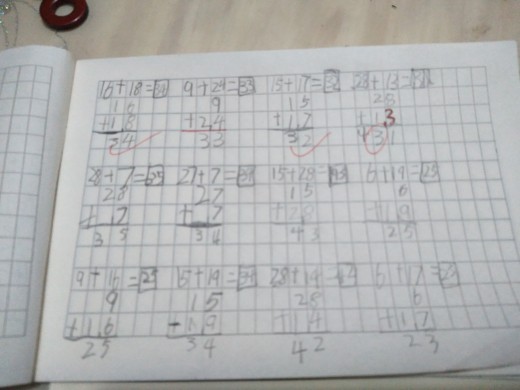 16+18=34 9+24=33 15+17=32 28+13=31
16 9 15 28
+18 +24 +17 +13
34 33 32 31
28+7=35 27+7=34 15+28=43 6+19=25
28 27 15 6
+ 7 + 7 +28 +19
35 34 43 25
9+16=25 15+19=34 28+14=42 6+17=23
9 15 28 6
+16 +19 +14 +17
25 34 42 23